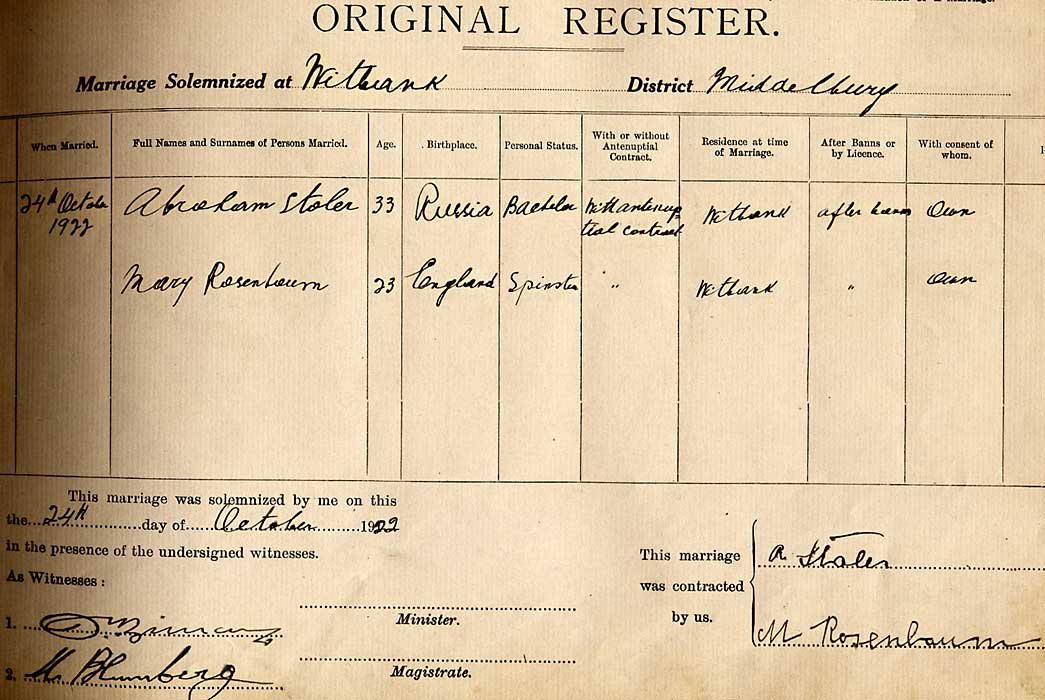 ORIGINAL REGISTER.
Marriage Solemnized at Witbank District Middelburg
When Married.
Full Names and Surnames of Persons Married.
Age.
Birthplace.
Personal Status.
With or without
Antenuptial
Contract.
Residence at time
of Marriage.
After Banns or
by Licence.
With consent of
whom.
24th October Abraham Stoler 33 Russia Bachelor With antenup- Witbank after banns Own
1922 tial contract
Mary Rosenbaum 23 England Spinster " Witbank " Own
This marriage was solemnized by me on this
the 24th day of October 1922
in the presence of the undersigned witnesses.
As Witnesses:
1.
2. M Blumberg
Minister.
Magistrate.
This marriage
was contracted
by us.
A Stoler
M Rosenbaum